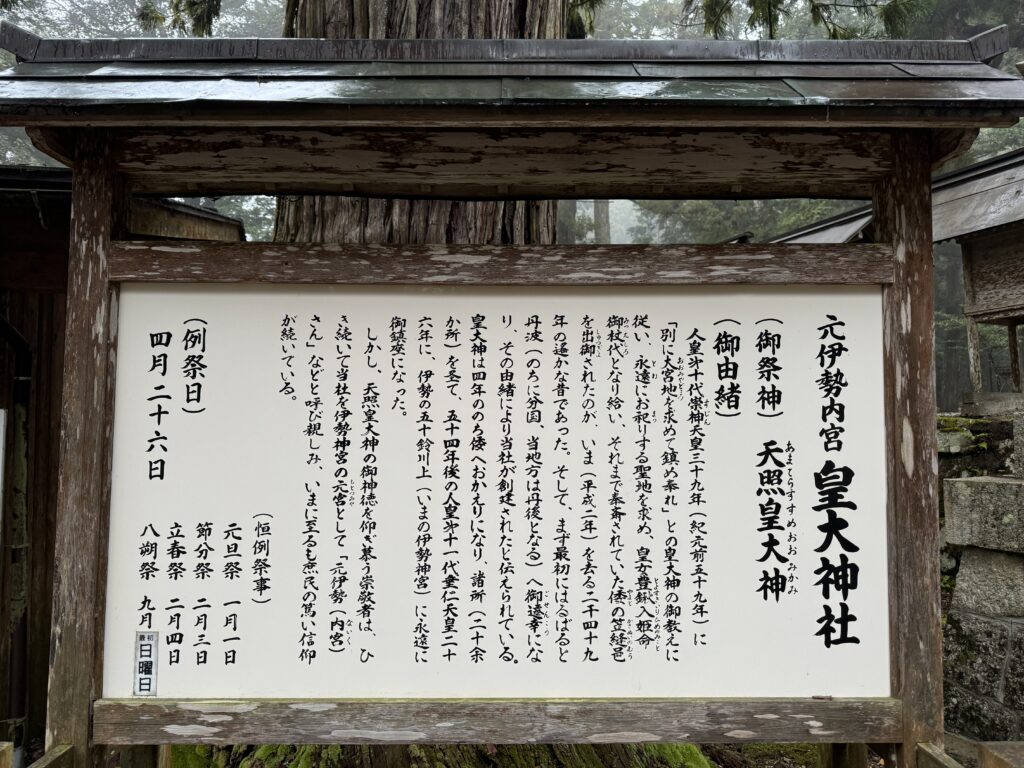 元伊勢内宮 皇大神社
(御祭神) 天照皇大神
あまてらすすめおおみかみ
(御由緒)
人皇第十代崇神天皇三十九年(紀元前五十九年)に
すじん
「別に大宮地を求めて鎮め奉れ」との皇大神の御教えに
おおみやどころ
従い、永遠にお祀りする聖地を求め、皇女豊鍬入姫命
とわ
まつ
とよすきいりひめのみこと
御杖代となり給い、それまで奉斎されていた倭の笠縫邑
みつえしろ
やまと
かさぬいのむら
を出御されたのが、いま(平成二年)を去る二千四十九
しゅつぎょ
年の遥かな昔であった。そして、まず最初にはるばると
丹波(のちに分国、当地方は丹後となる)へ御遷幸にな
ごせんこう
り、その由緒により当社が創建されたと伝えられている。
皇大神は四年ののち倭へおかえりになり、諸所(二十余
か所)を経て、五十四年後の人皇第十一代垂仁天皇二十
六年に、伊勢の五十鈴川上(いまの伊勢神宮)に永遠に
御鎮座になった。
しかし、天照皇大神の御神徳を仰ぎ慕う崇敬者は、ひ
き続いて当社を伊勢神宮の元宮として「元伊勢(内宮)
もとつみや
ないく
さん」などと呼び親しみ、いまに至るも庶民の篤い信仰
が続いている。
(恒例祭事)
元旦祭 一月一日
節分祭 二月三日
立春祭 二月四日
八朔祭 九月 最初 日曜日
(例祭日)
四月二十六日